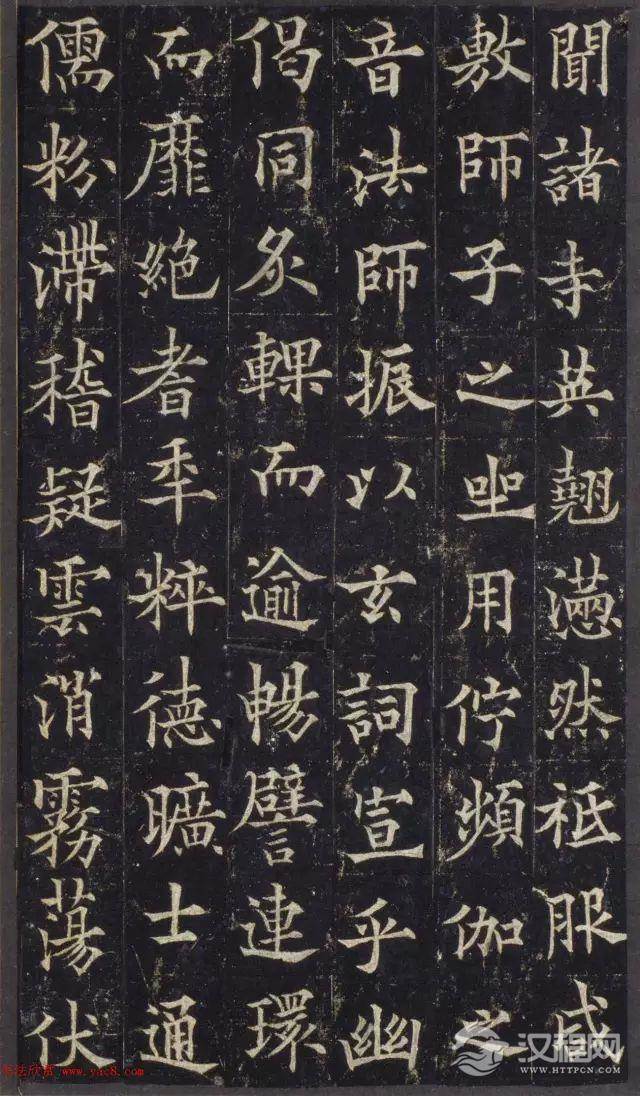 聞諸寺英翹懣然祗服咸
敷師子之坐用佇頻伽之
音法師振以玄詞宣乎幽
偈同炙輠而逾暢譬連環
而靡絕耆年粹德曠士通
儒粉滯稽疑雲消霧蕩伏
书法欣赏 www.yac8.com
汉程网
WWW.HTTPCN.COM